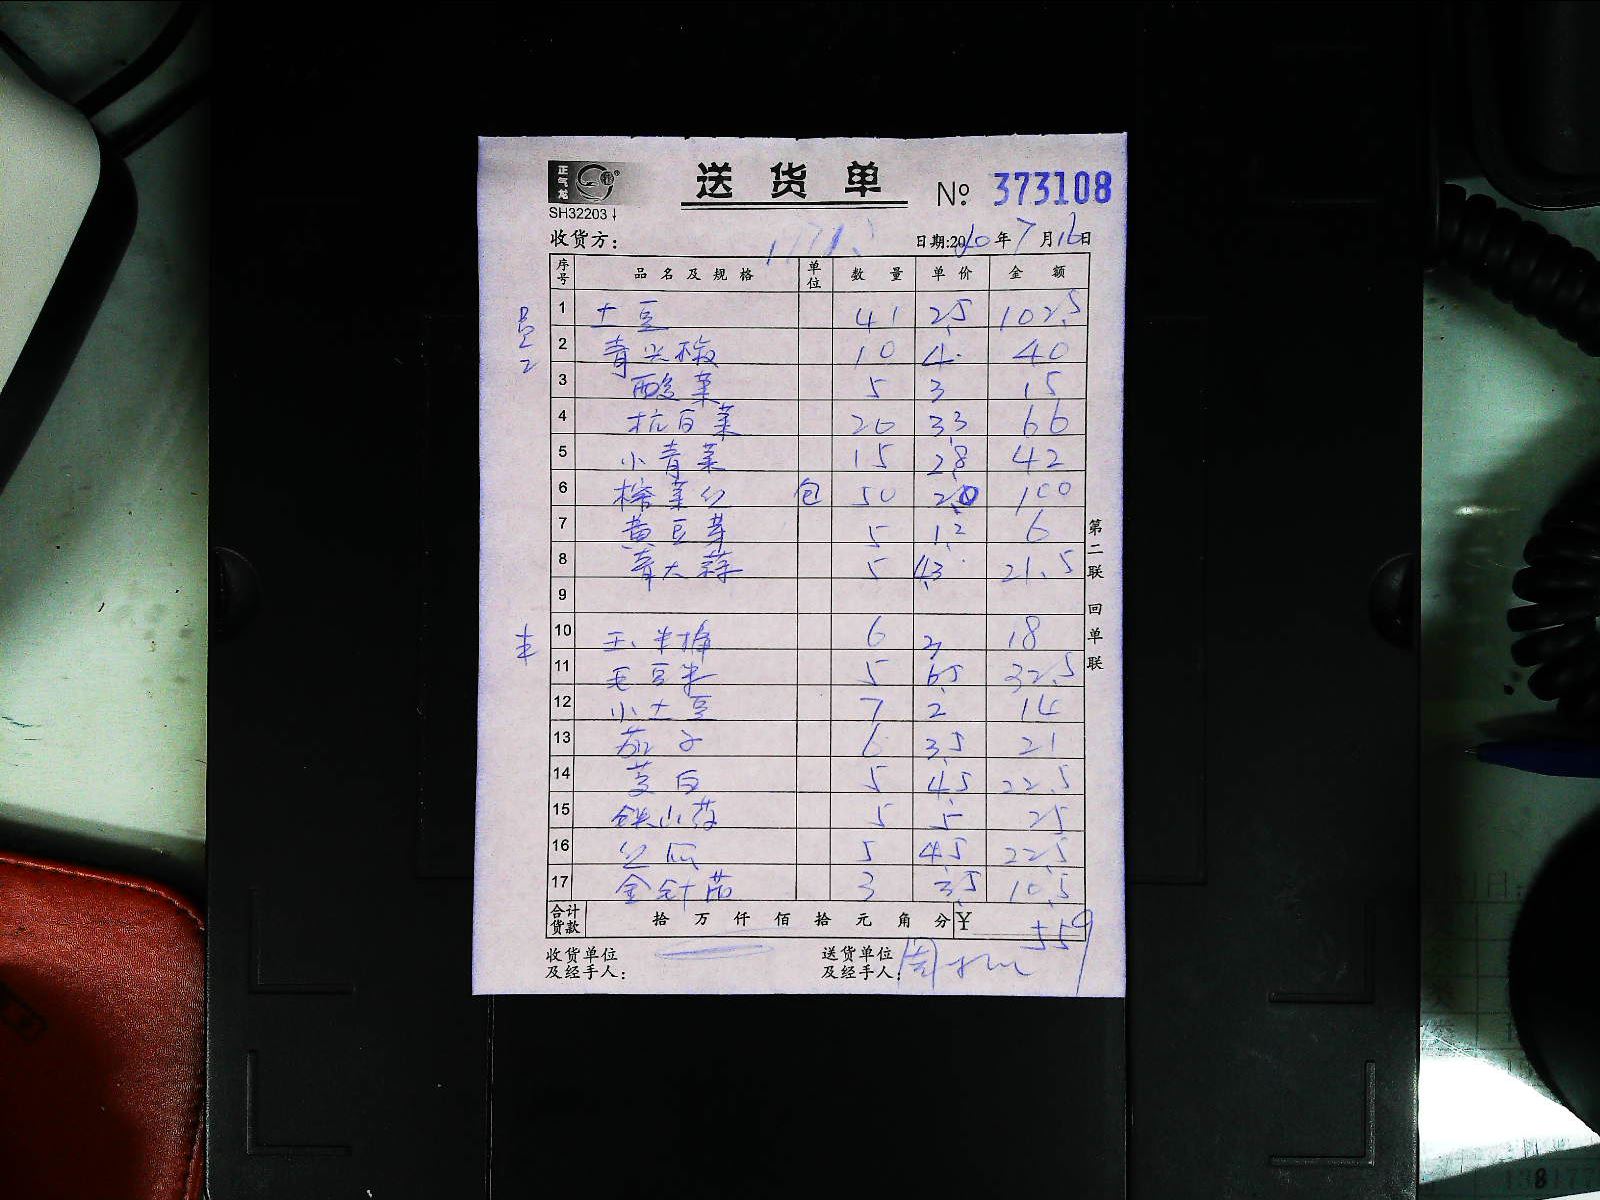 正气龙
送货单 № 373108
SH32203
收货方: 日期:2010年7月16日
序号 品名及规格 单位 数量 单价 金额
1 土豆 41 2.5 102.5
2 青尖椒 10 4 40
3 酸菜 5 3 15
4 杭白菜 20 3.3 66
5 小青菜 15 2.8 42
6 榨菜丝 包 50 2.0 100
7 黄豆芽 5 1.2 6
8 青大蒜 5 4.3 21.5
9
10 玉米棒 6 3 18
11 毛豆米 5 6.5 32.5
12 小土豆 7 2 14
13 茄子 6 3.5 21
14 茭白 5 4.5 22.5
15 铁山药 5 5 25
16 丝瓜 5 4.5 22.5
17 金针菇 3 3.5 10.5
合计货款 拾万仟佰拾元角分 ¥ 559
收货单位及经手人: 送货单位及经手人: 周
第二联 回单联